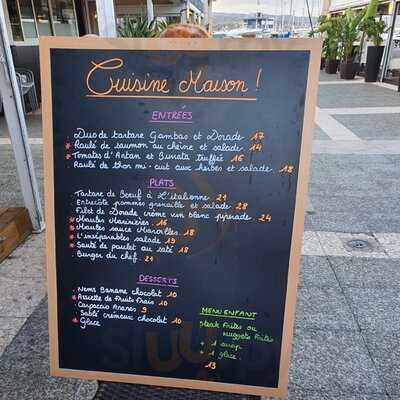 Cuisine Maison !
ENTRÉES
. Duo de tartare Gambas et Dorade 17
* Roulé de saumon au chèvre et salade . 14
* Tomates d'Antan et Burrata truffée 16
. Roulé de thon mi-cuit aux herbes et salade . 18
PLATS
. Tartare de Bœuf à l'italienne . 21
. Entrecôte pommes grenaille et salade . 28
. Filet de Dorade crème vin blanc piperade . 24
* Moules Marinières . 16
* Moules sauce Maroilles . 18
* L'inséparables salade . 19
* Sauté de poulet au saté . 18
. Burger du chef . 21
DESSERTS
. Nems Banane chocolat 10
* Assiette de Fruits Frais 10
. Carpaccio Ananas 9
. Sablé crémeux chocolat 10
* Glace
MENU ENFANT
Steak Frites ou
Nuggets Frites
+ 1 sirop
+ 1 glace.
13